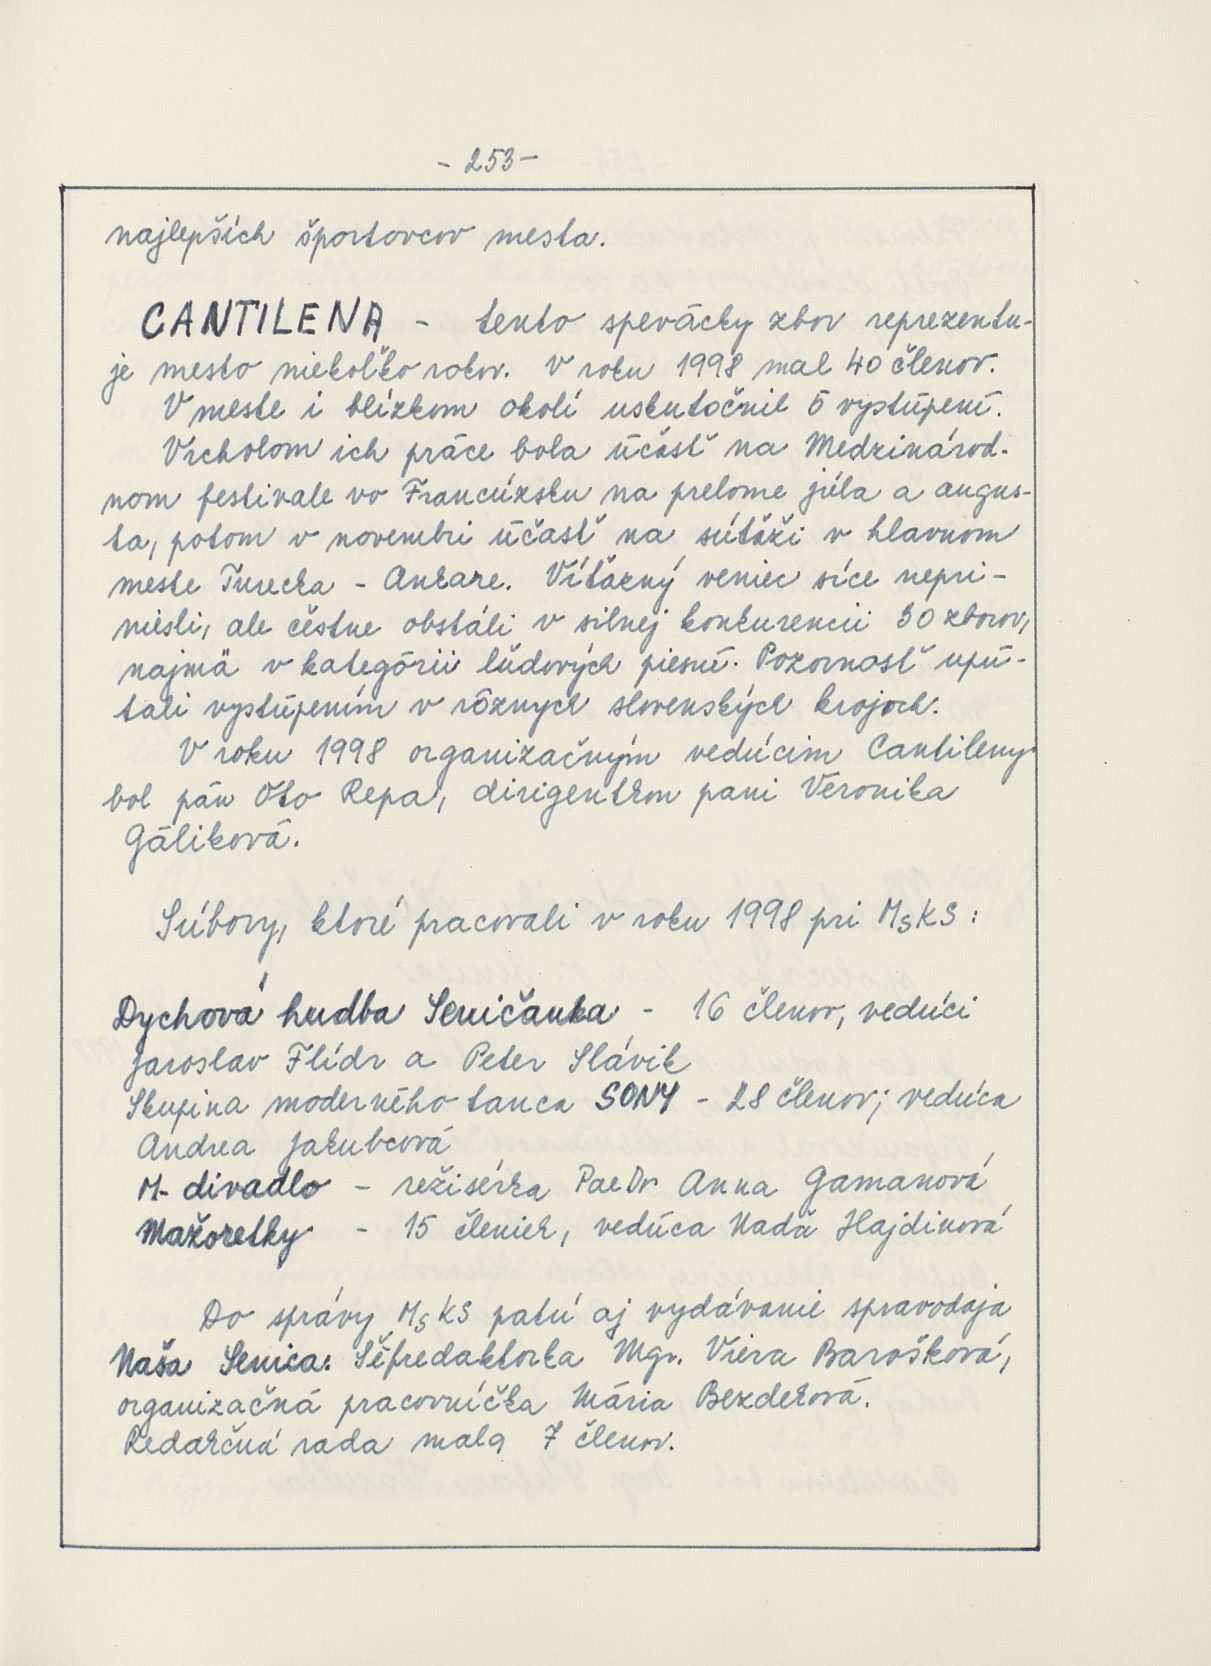 - 253 -
najlepších športovcov mesta.
CANTILENA - tento spevácky zbor reprezentu-
je mesto niekoľko rokov. V roku 1998 mal 40 členov.
V meste i blízkom okolí uskutočnil 5 vystúpení.
Vrcholom ich práce bola účasť na Medzinárod-
nom festivale vo Francúzsku na prelome júla a augus-
ta, potom v novembri účasť na súťaži v hlavnom
meste Turecka - Ankare. Víťazný veniec síce nepri-
niesli, ale čestne obstáli v silnej konkurencii 30 zborov,
najmä v kategórii ľudových piesní. Pozornosť upú-
tali vystúpením v rôznych slovenských krojoch.
V roku 1998 organizačným vedúcim Cantileny
bol pán Oto Repa, dirigentkou pani Veronika
Gáliková.
Súbory, ktoré pracovali v roku 1998 pri MsKS:
Dychová hudba Seničanka - 16 členov, vedúci
Jaroslav Flídr a Peter Slávik
Skupina moderného tanca SONY - 28 členov; vedúca
Andrea Jakubcová
M- divadlo - režisérka PaeDr Anna Gamanová
Mažoretky - 15 členiek, vedúca Naďa Hajdinová
Do správy MsKS patrí aj vydávanie spravodaja
Naša Senica. Šéfredaktorka Mgr. Viera Barošková,
organizačná pracovníčka Mária Bezdeková.
Redakčná rada mala 7 členov.